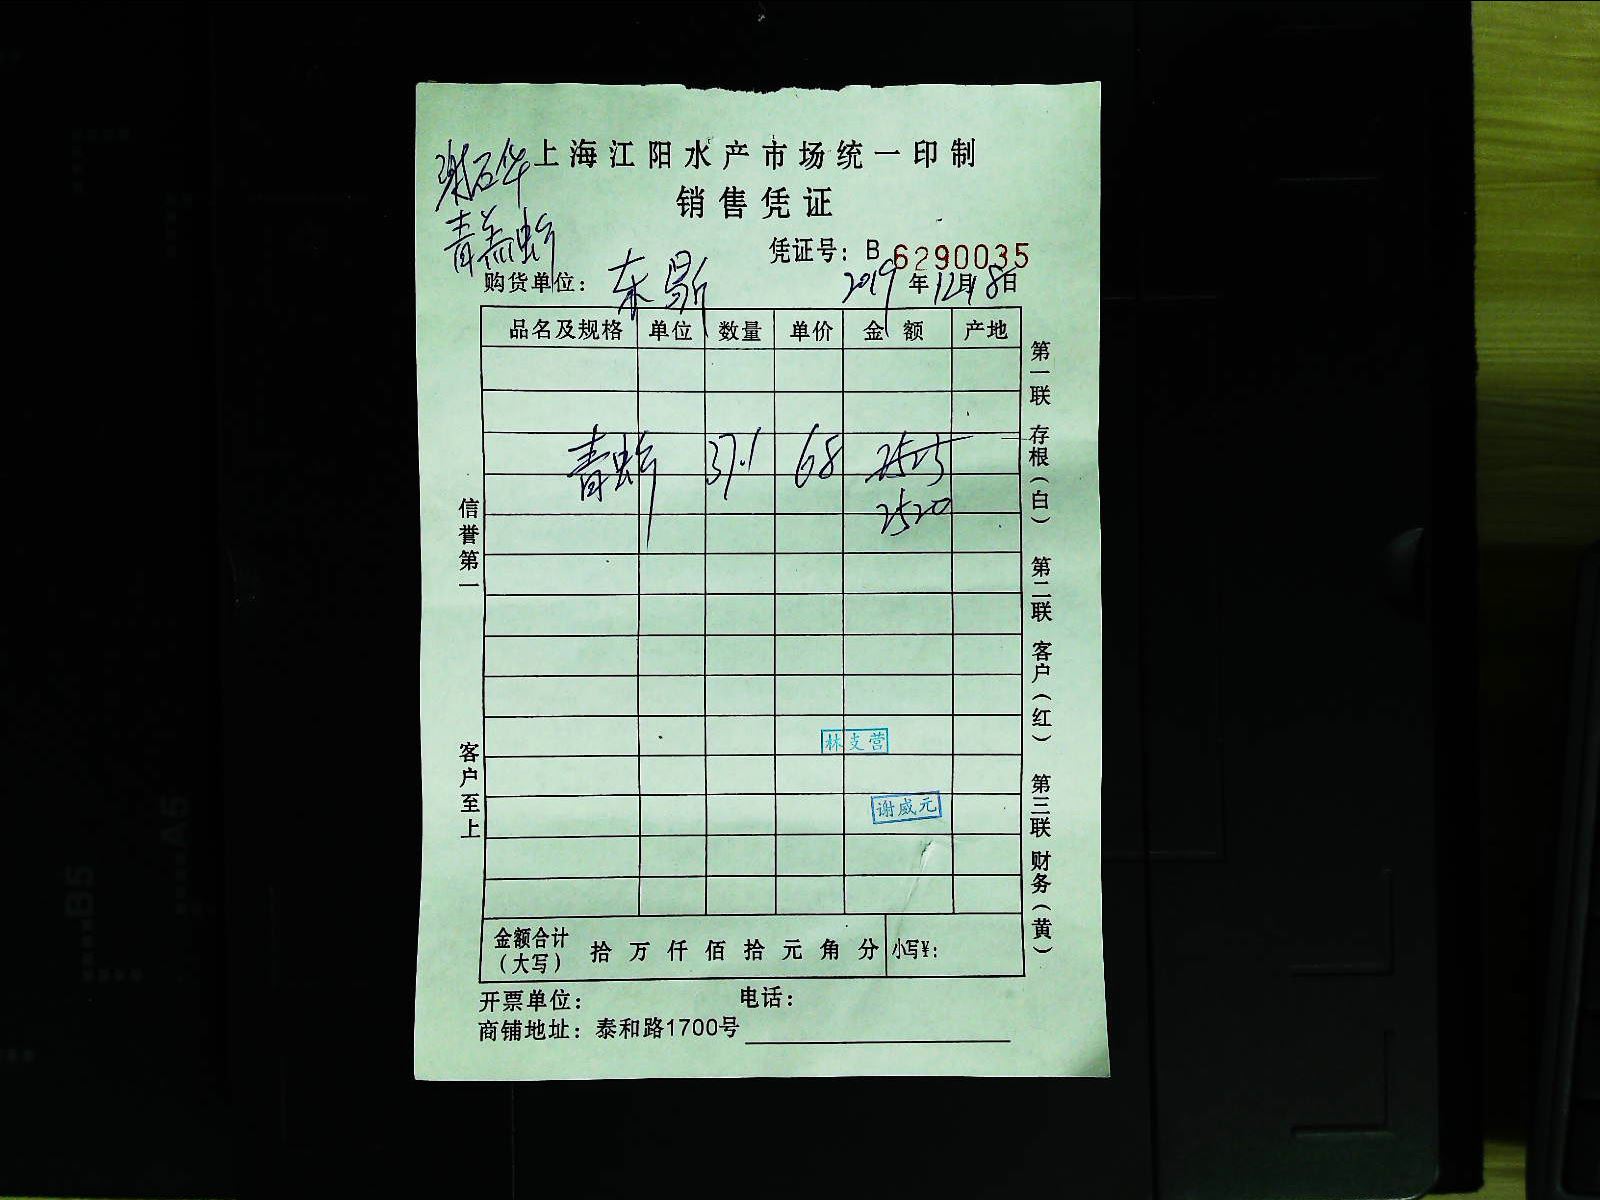 上海江阳水产市场统一印制
销售凭证
凭证号：B 6290035
购货单位： 2019年12月18日
品名及规格 单位 数量 单价 金额 产地
青虾 37.1 68 2525
2520
信誉第一
客户至上
第一联 存根（白） 第二联 客户（红） 第三联 财务（黄）
林支营
谢威元
金额合计（大写） 拾 万 仟 佰 拾 元 角 分 小写¥：
开票单位： 电话：
商铺地址：泰和路1700号
B5
A5